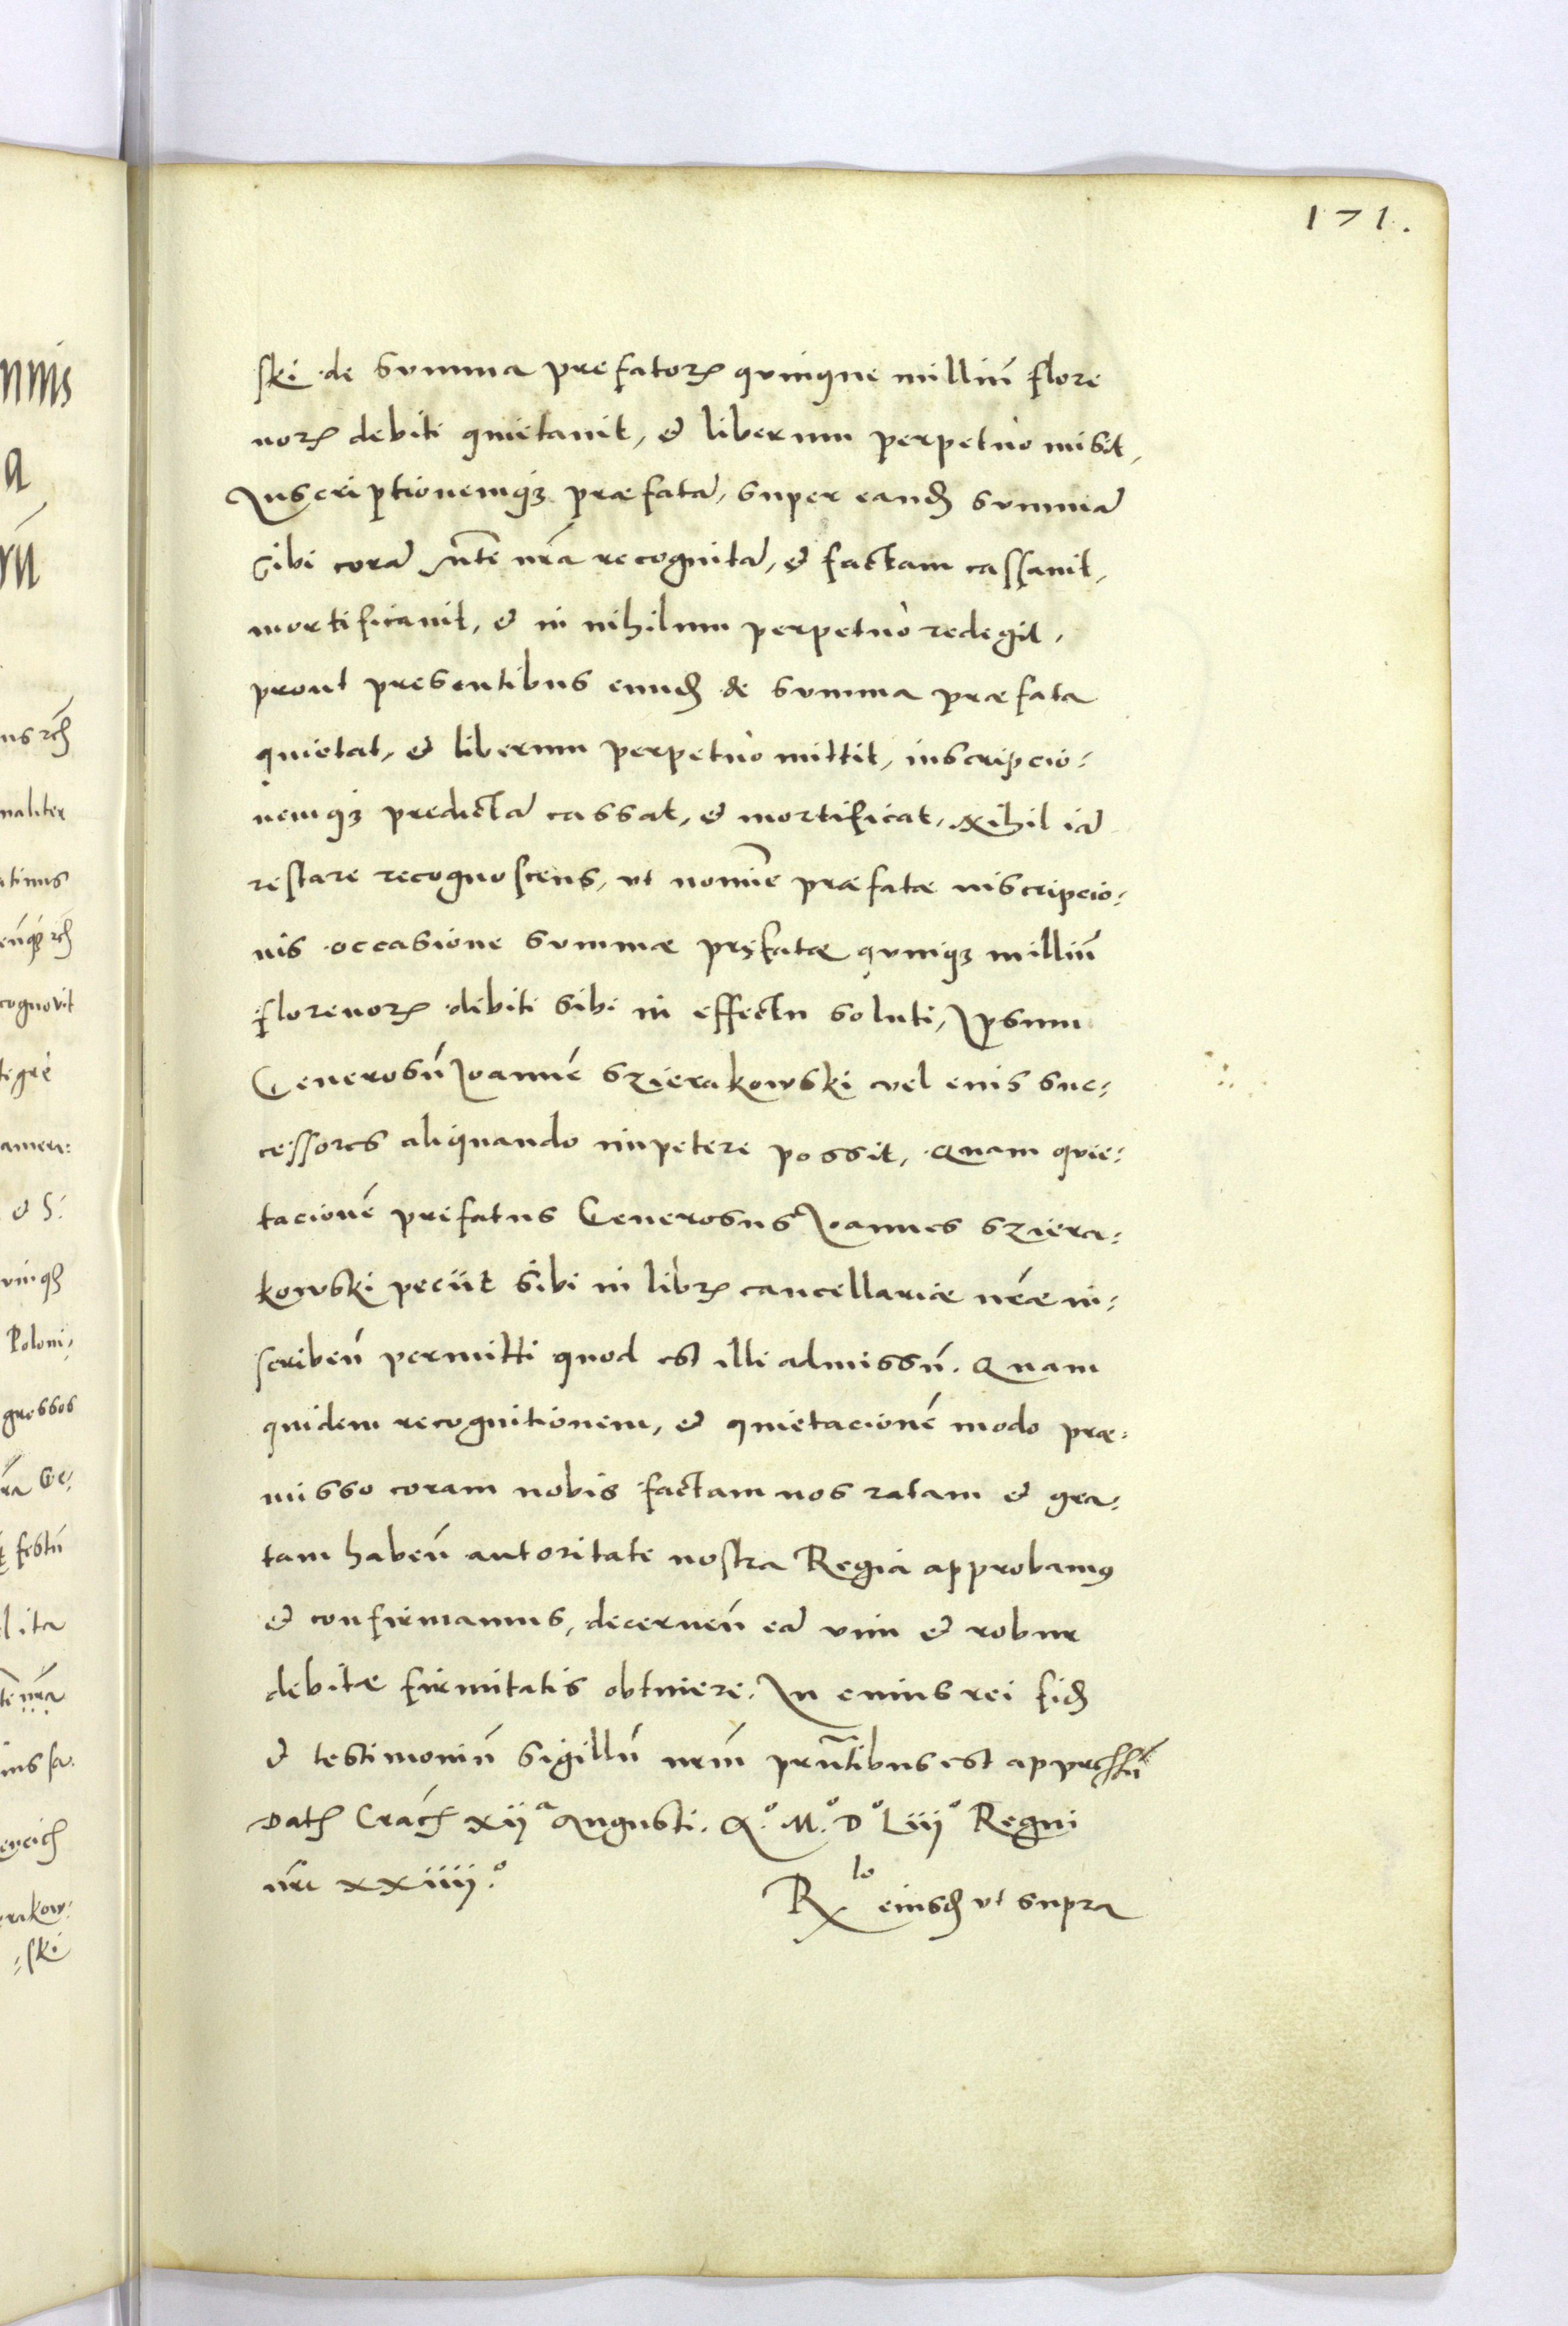 171.
ski de summa prefatorꝝ quinque milliū flore
norꝝ debiti quietavit, et liberum perpetuo misit,
Inscriptionemqꝫ præfatā, super eandē summā
sibi corā Mte nrā recognitā, et factam cassavit,
mortificavit, et in nihilum perpetuo redegit,
prout presentibus eundē de summa præfata
quietat, et liberum perpetuo mittit, inscripcio:
nemqꝫ predictā cassat, et mortificat, Nihil iā
restare recognoscens, ut nomīe præfatæ inscripcio:
nis occasione summæ pręfatæ quinqꝫ milliū
florenorꝝ debiti sibi in effectu soluti, Ipsum
Generosū Ioannē Szierakowski vel eius suc:
cessores aliquando impetere possit, Quam quie:
tacionē prefatus Generosus Ioannes Sziera:
kowski peciit sibi in librꝝ cancellariæ nrǣ in:
scribeñ permitti quod est illi admissū. Quam
quidem recognitionem, et quietacionē modo præ:
misso coram nobis factam nos ratam et gra:
tam habeñ autoritate nostra Regia approbamꝰ
et confirmamus, decerneñ eā vim et robur
debitæ firmitatis obtinere. In cuius rei fidē
et testimoniū sigillū nrm̄ prn̄tibus est appressū
Datꝫ Cracꝫ xijª Augusti. Aº. Mº. Dº Liijº Regni
nri xxiiijº.
Rlo eiusdē ut supra
nnis
a
naliter
cognovit
tigrè
et S.
Poloni
grossos
festū
lita
te nrā
rakow:
:ski